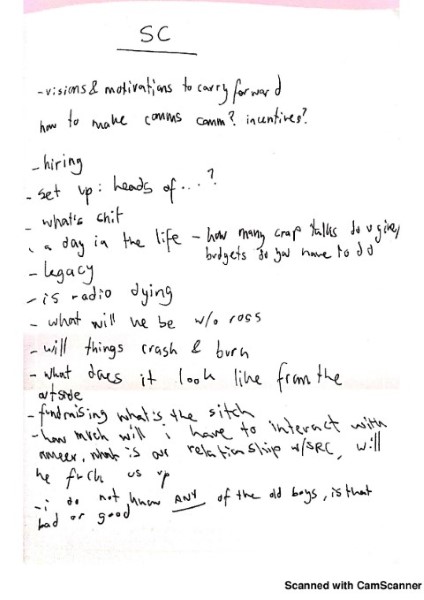 SC
-visions & motivations to carry forward
how to make comms comm? incentives?
-hiring
-set up: heads of...?
- what's shit
- a day in the life - how many crap talks do u give/
budgets do you have to do
-legacy
-is radio dying
-what will we be w/o ross
-will things crash & burn
-what does it look like from the
outside
-fundraising what's the sitch
-how much will i have to interact with
ameer, what is our relationship w/SRC, will
he fuck us up
-i do not know ANY of the old boys, is that
bad or good
Scanned with CamScanner